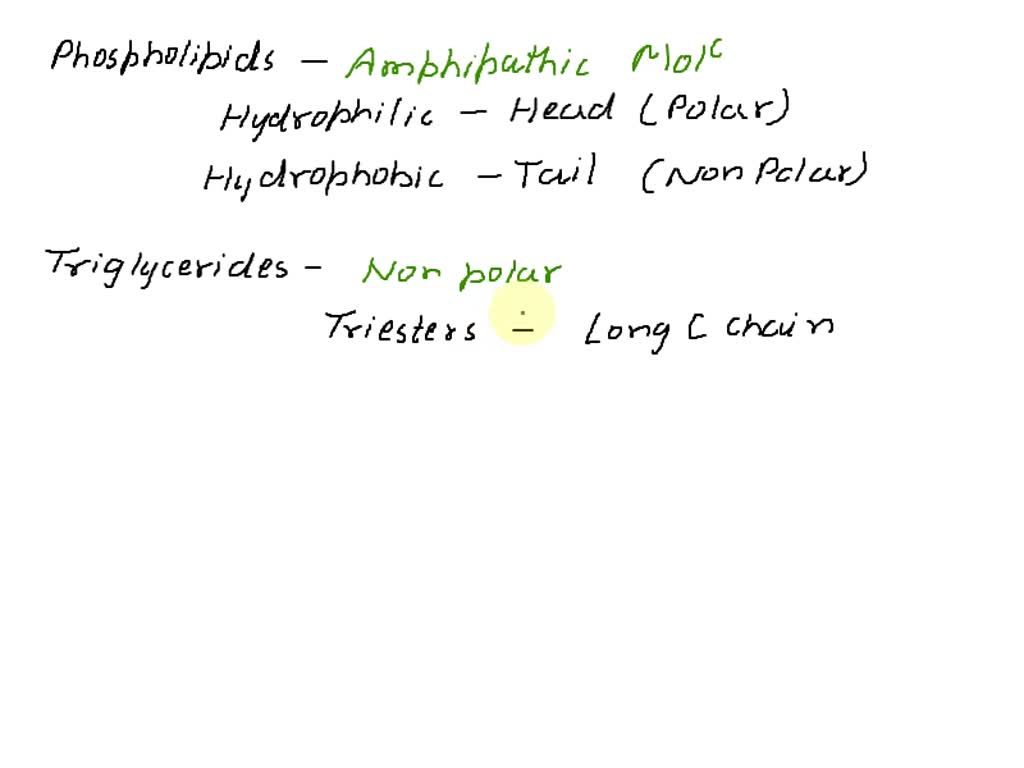 Phospholipids - Amphipathic Molc
Hydrophilic - Head (Polar)
Hydrophobic - Tail (Non Polar)
Triglycerides - Non polar
Triesters - Long C chain